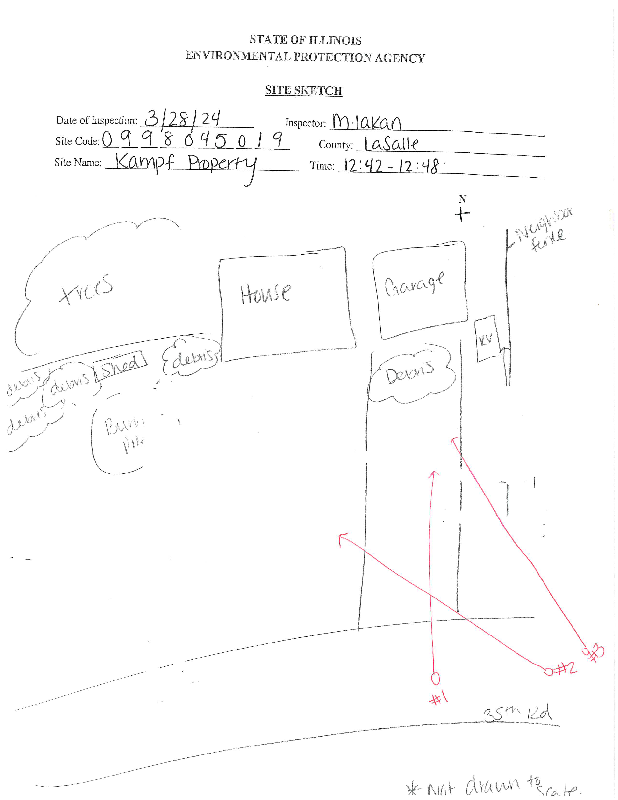 STATE OF ILLINOIS
ENVIRONMENTAL PROTECTION AGENCY
SITE SKETCH
Date of Inspection: 3/28/24 Inspector: M. Jakan
Site Code: 0998045019 County: LaSalle
Site Name: Kampf Property Time: 12:42 - 12:48
N
Neighbor
fence
trees
House
Garage
RV
debris
debris
Shed
debris
Debris
debris
Burn
pile
#1
#2
#3
35th Rd
* Not drawn to
scale.